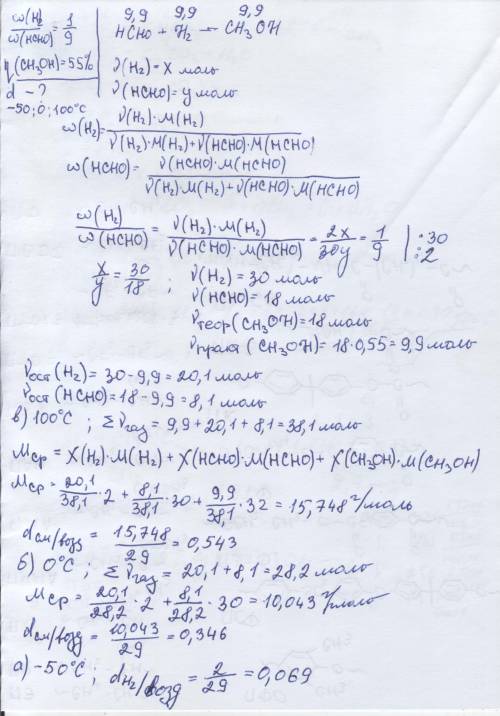 ω(H₂)/ω(HCHO) = 1/9
η(CH₃OH)=55%
d - ?
-50; 0; 100°C
9,9 9,9 9,9
HCHO + H₂ → CH₃OH
ν(H₂) = x моль
ν(HCHO) = y моль
ω(H₂) = ν(H₂)·M(H₂) / (ν(H₂)·M(H₂)+ν(HCHO)·M(HCHO))
ω(HCHO) = ν(HCHO)·M(HCHO) / (ν(H₂)·M(H₂)+ν(HCHO)·M(HCHO))
ω(H₂)/ω(HCHO) = ν(H₂)·M(H₂) / (ν(HCHO)·M(HCHO)) = 2x/30y = 1/9 | ·30 :2
x/y = 30/18 ; ν(H₂) = 30 моль
ν(HCHO) = 18 моль
νтеор(CH₃OH) = 18 моль
νпракт(CH₃OH) = 18·0,55 = 9,9 моль
νост(H₂) = 30 - 9,9 = 20,1 моль
νост(HCHO) = 18 - 9,9 = 8,1 моль
в) 100°C ; Σνгаз = 9,9 + 20,1 + 8,1 = 38,1 моль
Mср = X(H₂)·M(H₂) + X(HCHO)·M(HCHO) + X(CH₃OH)·M(CH₃OH)
Mср = 20,1/38,1 · 2 + 8,1/38,1 · 30 + 9,9/38,1 · 32 = 15,748 г/моль
dсм/возд = 15,748/29 = 0,543
б) 0°C ; Σνгаз = 20,1 + 8,1 = 28,2 моль
Mср = 20,1/28,2 · 2 + 8,1/28,2 · 30 = 10,043 г/моль
dсм/возд = 10,043/29 = 0,346
а) -50°C ; dH₂/возд = 2/29 = 0,069